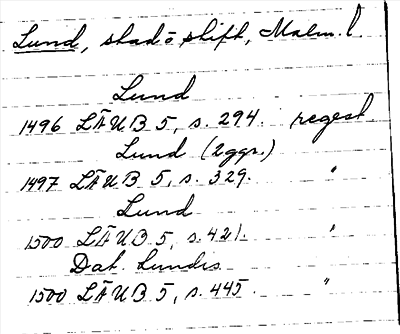 Lund, stad o stift, Malm. l.
Lund
1496 LÄUB 5, s. 294. regest
Lund (2ggr.)
1497 LÄUB 5, s. 329. "
Lund
1500 LÄUB 5, s. 421. "
Dat. Lundis
1500 LÄUB 5, s. 445. "